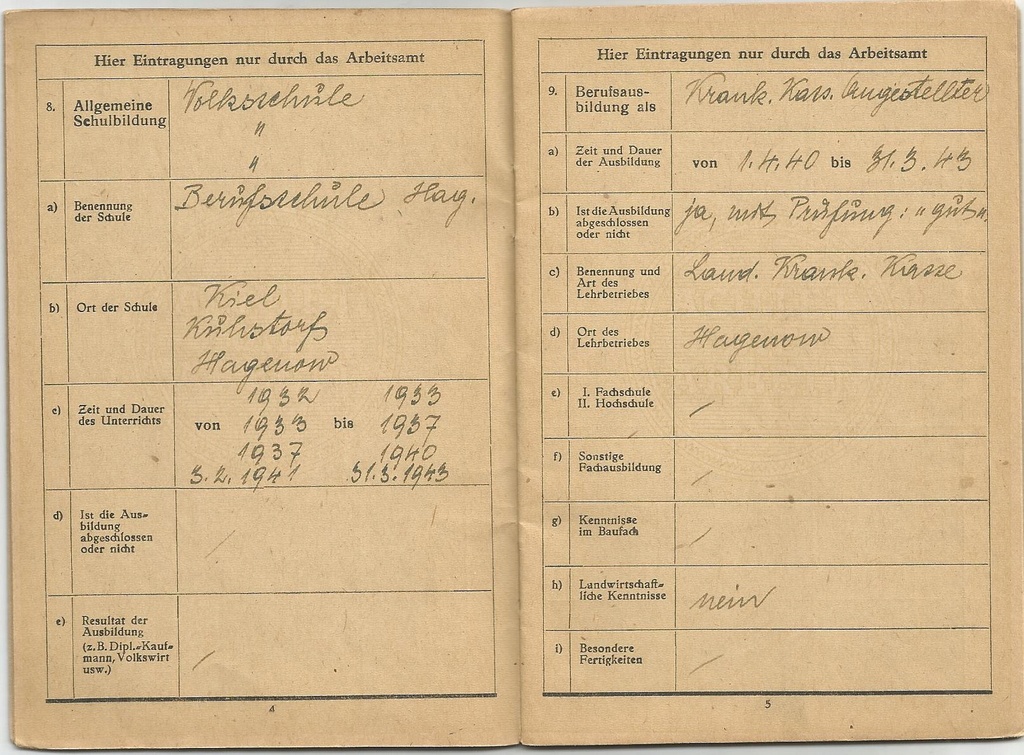 Hier Eintragungen nur durch das Arbeitsamt
8. Allgemeine Schulbildung
Volksschule
"
"
a) Benennung der Schule
Berufsschule Hag.
b) Ort der Schule
Kiel
Kuhstorf
Hagenow
c) Zeit und Dauer des Unterrichts
1932 1933
von 1933 bis 1937
1937 1940
3.2.1941 31.3.1943
d) Ist die Aus-
bildung
abgeschlossen
oder nicht
/
e) Resultat der
Ausbildung
(z.B. Dipl.-Kauf-
mann, Volkswirt
usw.)
/
4
Hier Eintragungen nur durch das Arbeitsamt
9. Berufsaus-
bildung als
Krank. Kass. Angestellter
a) Zeit und Dauer
der Ausbildung
von 1.4.40 bis 31.3.43
b) Ist die Ausbildung
abgeschlossen
oder nicht
ja, mit Prüfung: "gut".
c) Benennung und
Art des
Lehrbetriebes
Land. Krank. Kasse
d) Ort des
Lehrbetriebes
Hagenow
e) I. Fachschule
II. Hochschule
/
f) Sonstige
Fachausbildung
/
g) Kenntnisse
im Baufach
/
h) Landwirtschaft-
liche Kenntnisse
nein
i) Besondere
Fertigkeiten
/
5